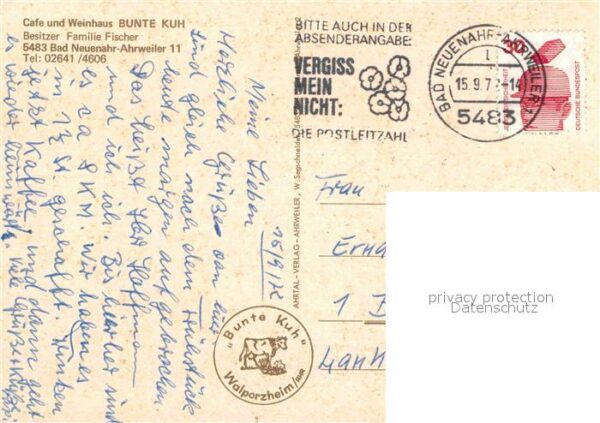 Cafe und Weinhaus BUNTE KUH
Besitzer Familie Fischer
5483 Bad Neuenahr-Ahrweiler 11
Tel: 02641 /4606
BITTE AUCH IN DER
ABSENDERANGABE:
VERGISS
MEIN
NICHT:
DIE POSTLEITZAHL
BAD NEUENAHR-AHRWEILER
15.9.7 -14
5483
DEUTSCHE BUNDESPOST
15/9/72
Meine Lieben
Herzliche Grüße von hier
sind gleich nach dem Frühstück
heute morgen aufgebrochen.
Das heißt Hoffmann
und ich. Bis hierher sind
es ca 8 KM. Wir haben es
in 1½ St geschafft. Trinken
jetzt Kaffee, und dann geht
es wieder heimwärts. Viele Grüße
AHRTAL-VERLAG-AHRWEILER, W.
Frau
1
"Bunte Kuh"
Walporzheim/AHR
privacy protection
Datenschutz